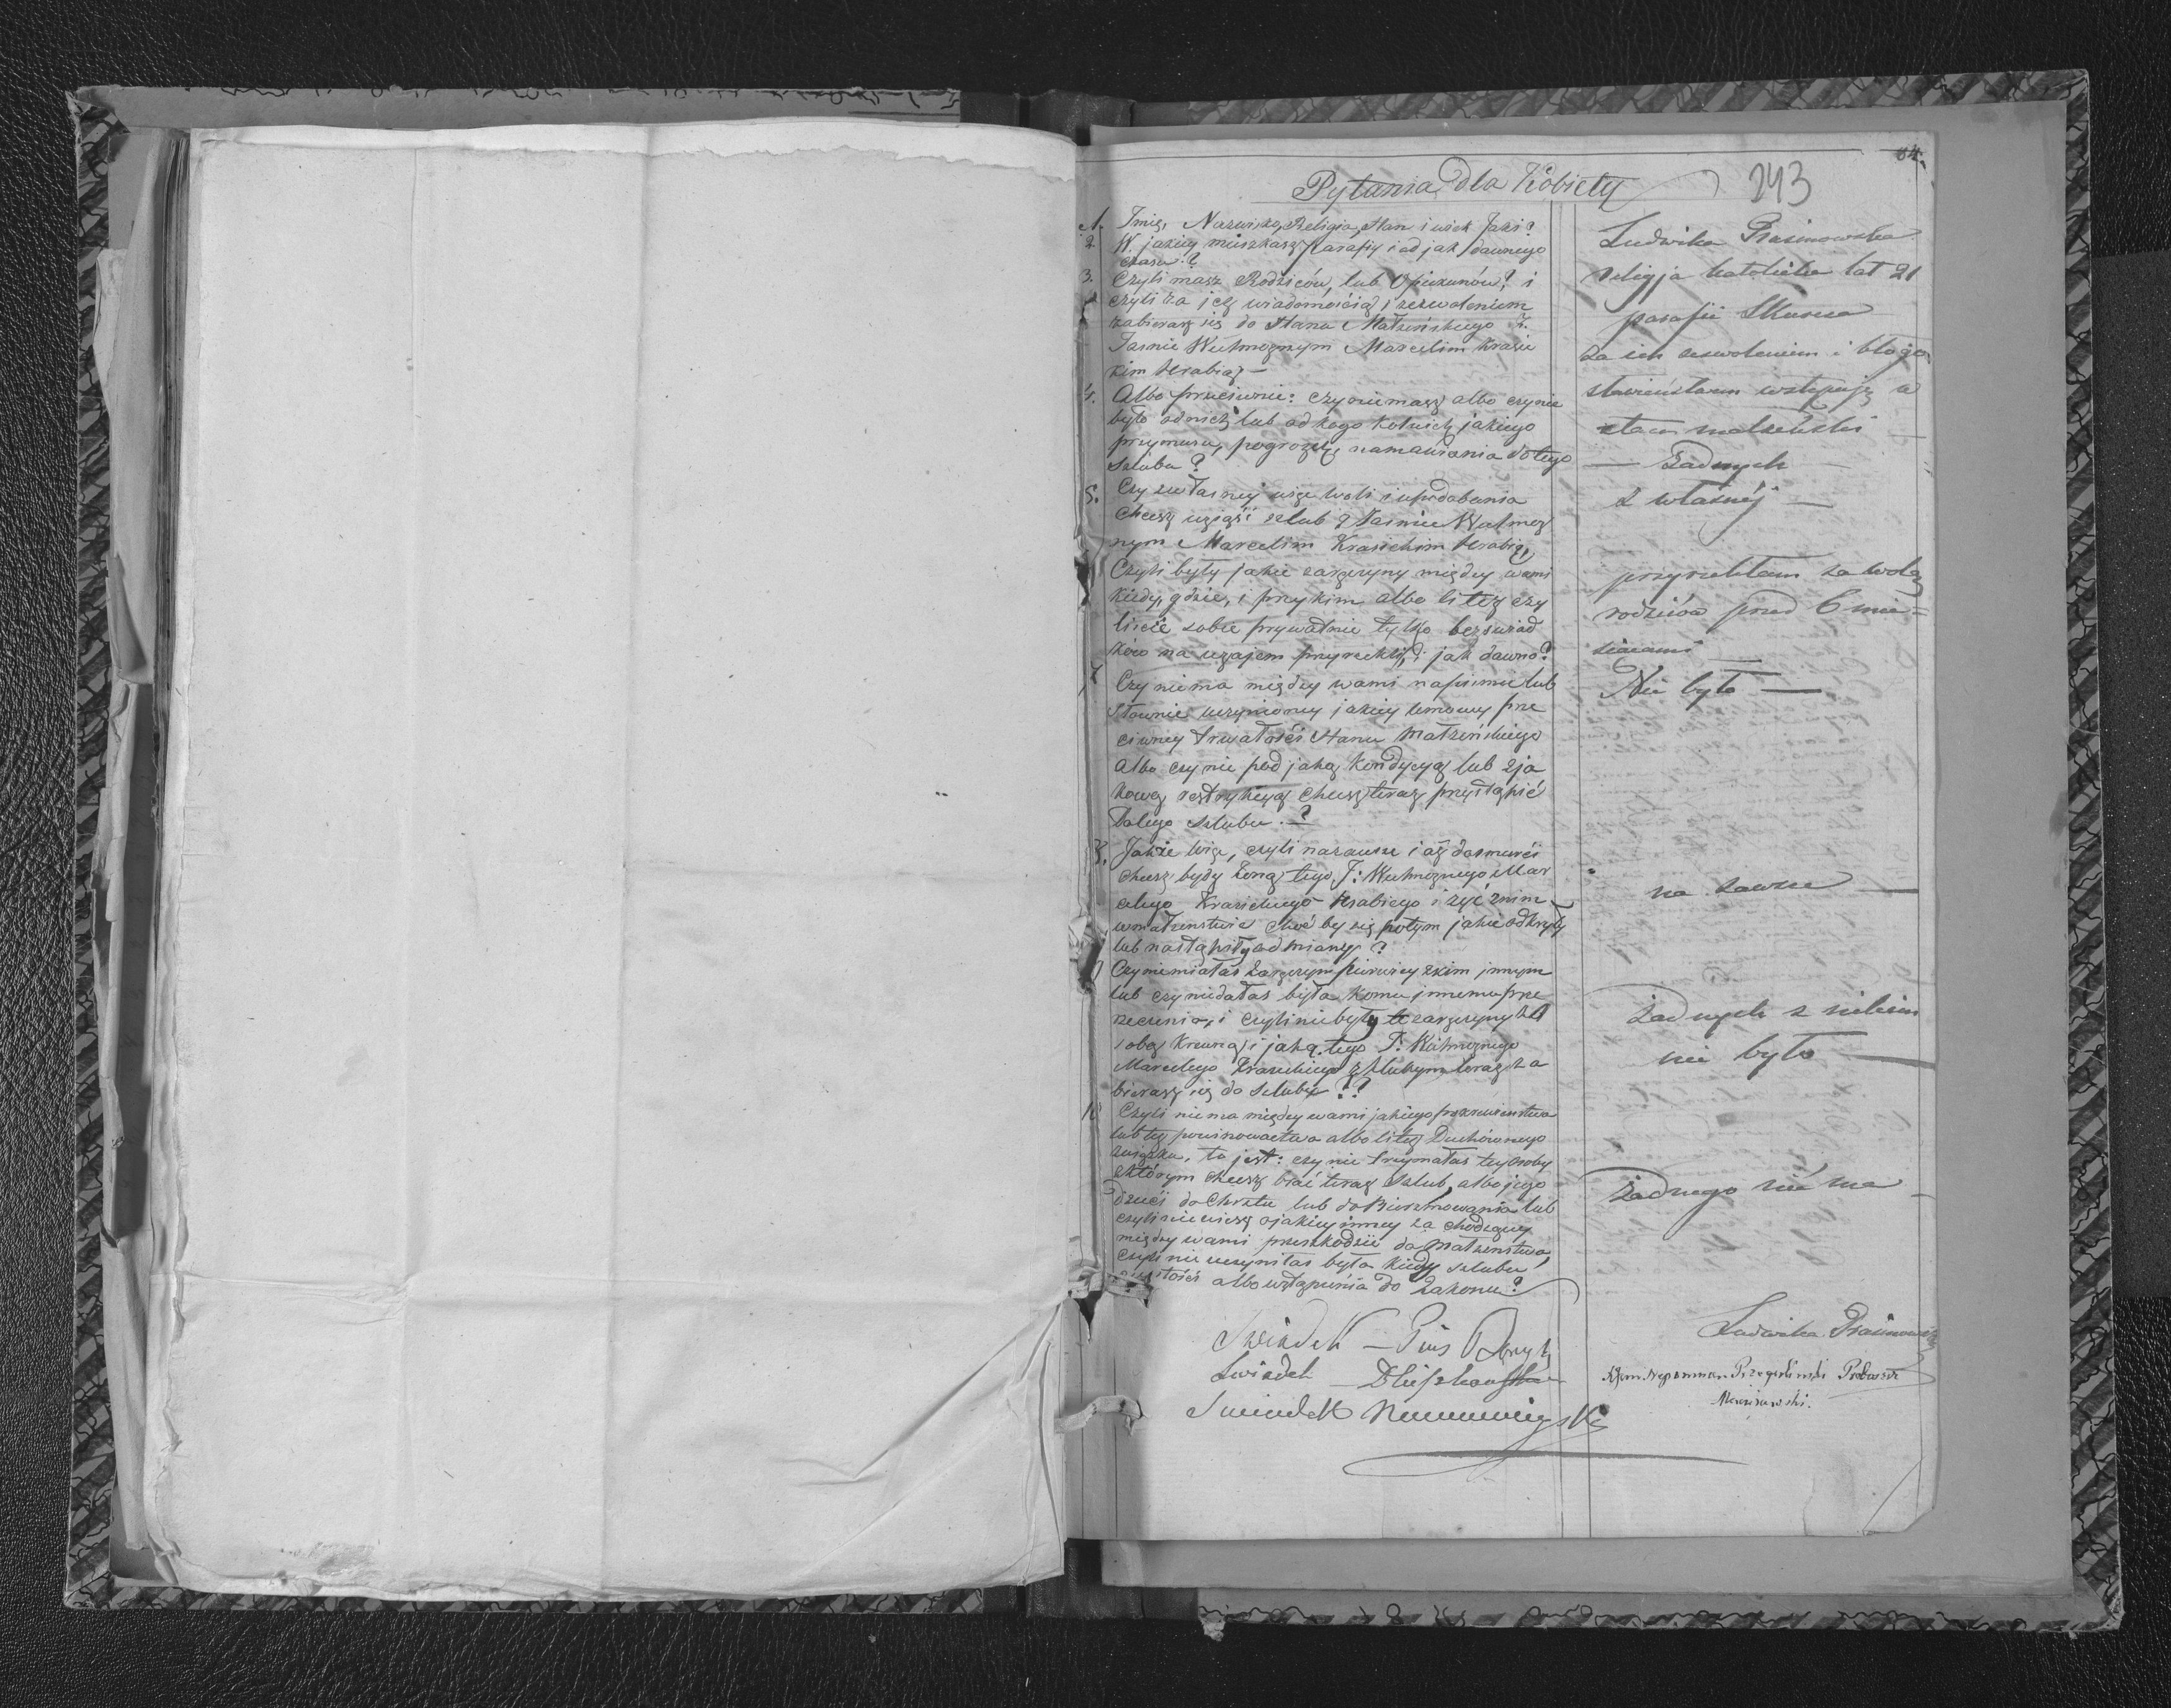 64.
Pytania dla Kobiety
243
1. Imię, Nazwisko, Religia, stan i wiek Jaki?
2. W jakiey mieszkasz parafiy i od jak dawnego
czasu?
3. Czyli masz Rodziców, lub Opiekunów? i
czyli za jeg wiadomością, i zezwoleniem
zabierasz się do stanu Małzeńskiego z.
Jasnie Wielmoznym Marcelim Krasic
kim Hrabią —
4. Albo przeciwnie: czy nie masz albo czy nie
było od nich lub od kogo kolwiek jakiego
przymusu, pogrozek, namawiania do tego
szlubu?
5. Czy z własney więc woli i upodobania
chcesz uziąść szlub z Jasnie Wielmoz
nym Marcelim Krasickim Hrabią,
Czyli były jakie zaręczyny między wami
kiedy, gdzie, i przy kim albo li też czy
liście sobie prywatnie tylko bez swiad
ków na uzajem przyrzekli, i jak dawno?
7 Czy niema między wami na pismie lub
słownie uczynioney jakiey umowy prze
ciwney trwałości stanu małzeńskiego
albo czy nie pod jaką kondycyą lub z ja
kową restrykcyą chcesz teraz przystąpić
do tego szlubu. ?
8. Jakże więc, czyli na zawsze i aż do smierci
chcesz bydź żoną tego J: Wielmoznego Mar
celego Krasickiego Hrabiego i żyć z nim
w małzenstwie choć by się potym jakie odkryły
lub nastąpiły odmiany?
9 Czy nie miałas zaręczyn pierwiey z kim innym
lub czy niedałas była komu innemu prze
rzeczenia, i czyli nie były te zaręczyny z
osobą krewną, i jaką tego J: Wielmoznego
Marcelego Krasickiego z którym teraz za
bierasz się do szlubu??
10 Czyli niema między wami jakiego pokrewienstwa
lub też powinowactwa albo li też Duchownego
związku, to jest: czy nie trzymałas tey osoby
z którym chcesz brać teraz szlub, albo jego
dzieci do Chrztu lub do Bierzmowania lub
czyli nie wiesz o jakiey inney za chodzącey
między wami przeszkodzie do małzenstwa,
czyli nie uczyniłas była kiedy szlubu
czystości albo wstąpienia do Zakonu?
Ludwika Prasinowska
religja katolicka lat 21
parafii Skursza
za ich zezwoleniem i błogo
sławieństwem wstępuję w
stan małzeński
— Żadnych —
z własnéj —
przyrzekłam za wolą
rodziców przed 6 mie-
siącami —
Nie było —
na zawsze —
żadnych z nikim
nie było —
żadnego nié ma —
Ludwika Prasinowska
Swiadek — Pius
Swiadek
Swiadek
Xjan Nepomucen Przegaliński Proboszcz